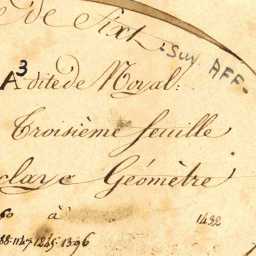 e de Sixt
Suy. AFF-
A 3 dite de Noyal:
Troisième feuille
claye Géomètre
à 1432
88.1147.1245.1396